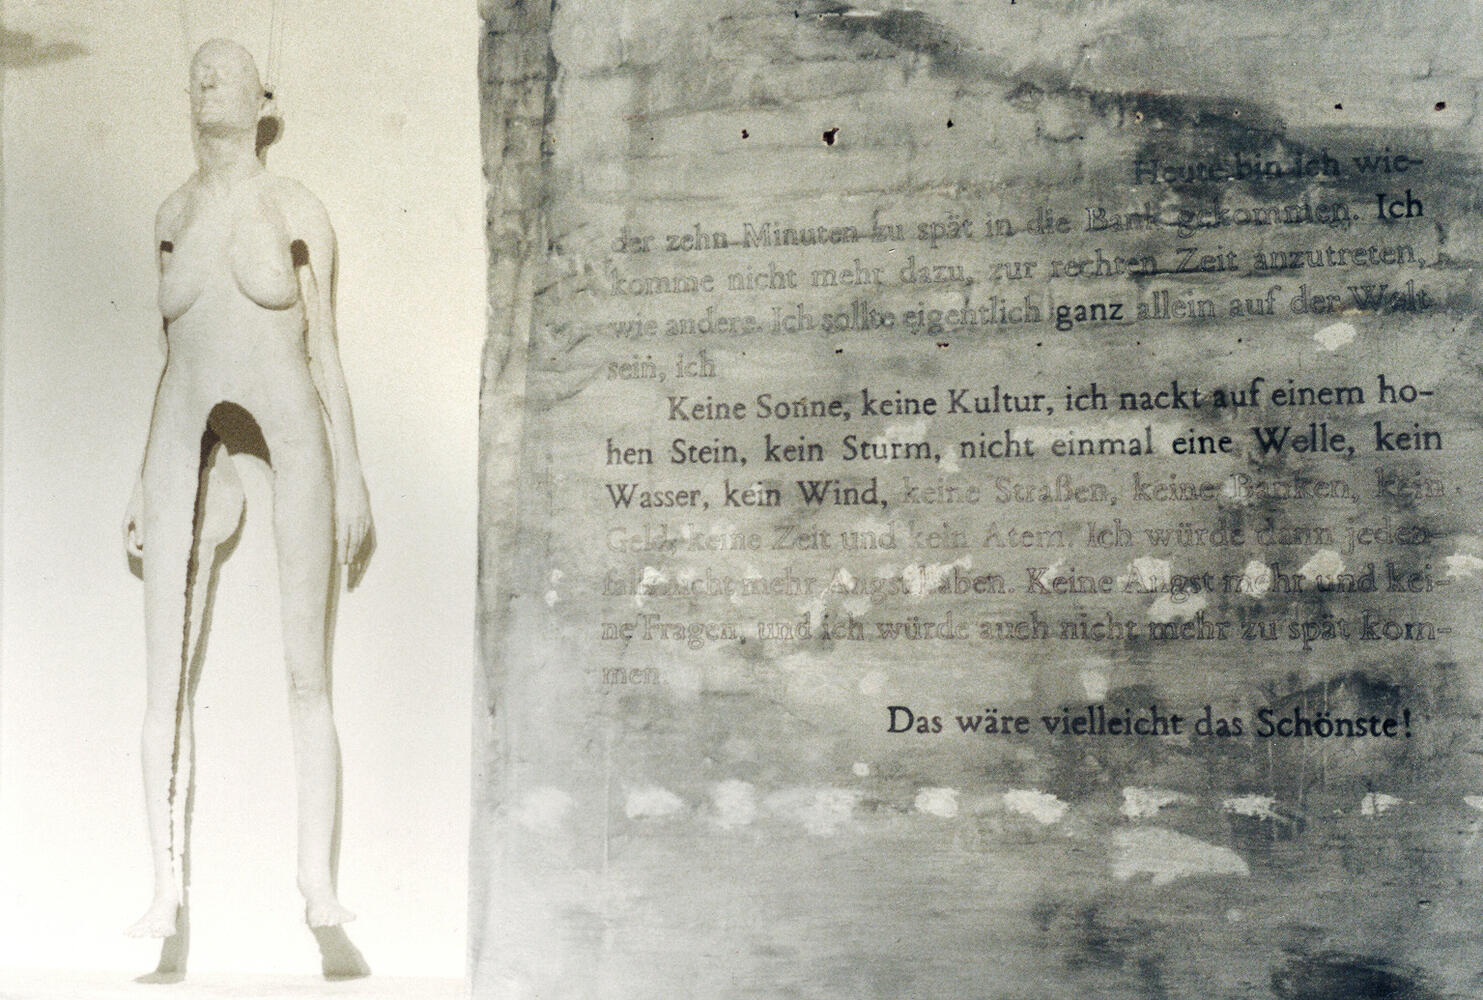 Heute bin ich wie-
der zehn Minuten zu spät in die Bank gekommen. Ich
komme nicht mehr dazu, zur rechten Zeit anzutreten,
wie andere. Ich sollte eigentlich ganz allein auf der Welt
sein, ich
Keine Sonne, keine Kultur, ich nackt auf einem ho-
hen Stein, kein Sturm, nicht einmal eine Welle, kein
Wasser, kein Wind, keine Straßen, keine Banken, kein
Geld, keine Zeit und kein Atem. Ich würde dann jeden-
falls nicht mehr Angst haben. Keine Angst mehr und kei-
ne Fragen, und ich würde auch nicht mehr zu spät kom-
men.
Das wäre vielleicht das Schönste!